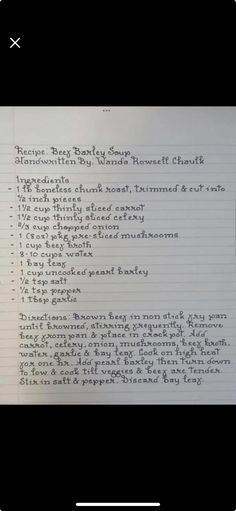 Recipe: Beef Barley Soup
Handwritten By: Wanda Rowsell Chaulk
Ingredients
- 1 lb boneless chunk roast, trimmed & cut into
1/2 inch pieces
- 1 1/2 cup thinly sliced carrot
- 1 1/2 cup thinly sliced celery
- 2/3 cup chopped onion
- 1 (8oz) pkg pre-sliced mushrooms
- 1 cup beef broth
- 8-10 cups water
- 1 bay leaf
- 1 cup uncooked pearl barley
- 1/2 tsp salt
- 1/2 tsp pepper
- 1 tbsp garlic
Directions: Brown beef in non stick fry pan
until browned, stirring frequently. Remove
beef from pan & place in crock pot. Add
carrot, celery, onion, mushrooms, beef broth,
water, garlic & bay leaf. Cook on high heat
for one hr. Add pearl barley then turn down
to low & cook till veggies & beef are tender.
Stir in salt & pepper. Discard bay leaf.